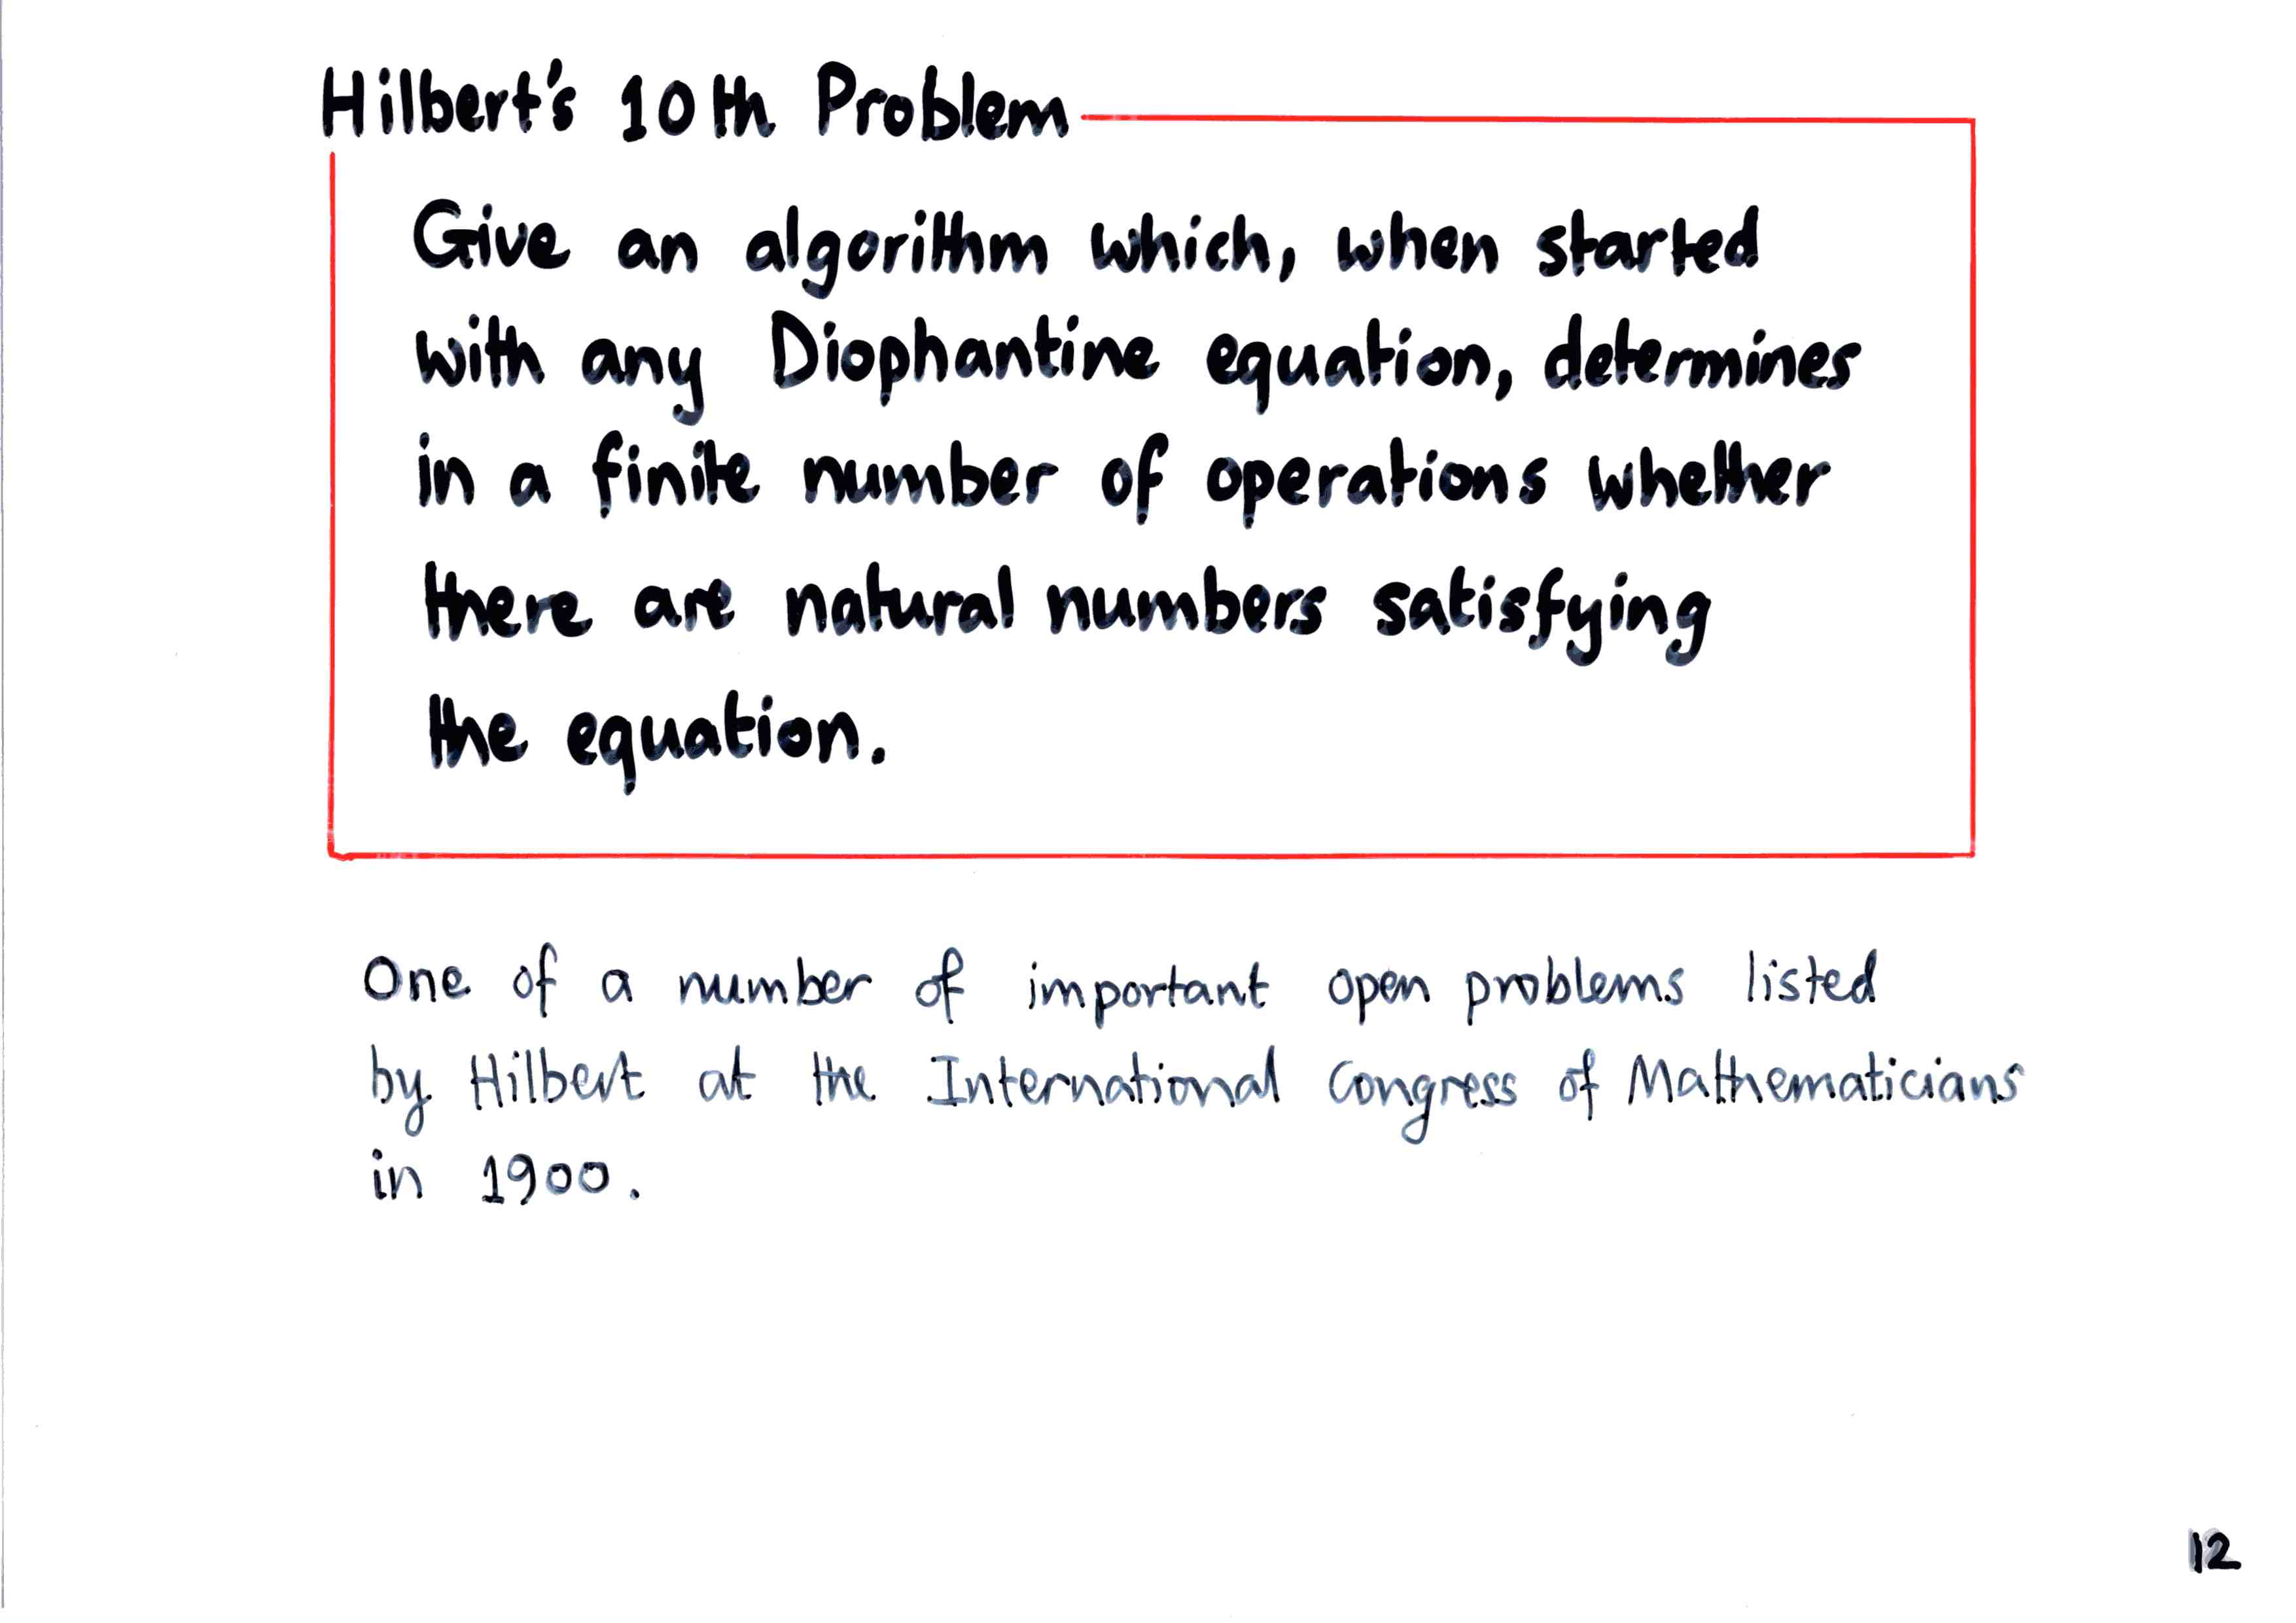 Hilbert's 10th Problem
Give an algorithm which, when started
with any Diophantine equation, determines
in a finite number of operations whether
there are natural numbers satisfying
the equation.
One of a number of important open problems listed
by Hilbert at the International Congress of Mathematicians
in 1900.
12